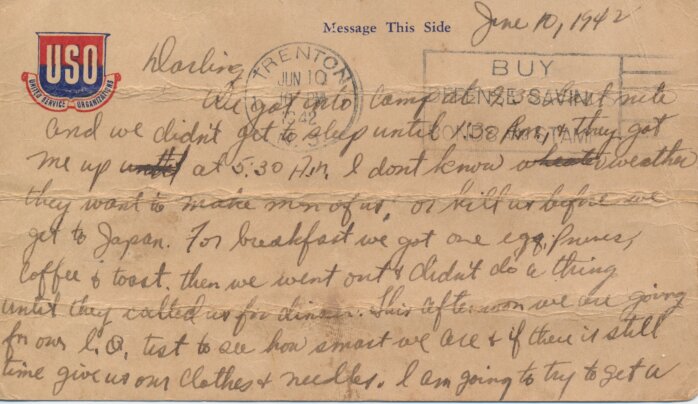 Message This Side
June 10, 1942
USO
UNITED SERVICE ORGANIZATIONS
TRENTON
JUN 10
1942
N. J.
BUY
DEFENSE SAVINGS
BONDS AND STAMPS
Darling
We got into camp at last nite
and we didn't get to sleep until A.M., & they got
me up at 5:30 A.M. I dont know weather
they want to make men of us, or kill us before we
get to Japan. For breakfast we got one egg, Prunes,
Coffee & toast. then we went out & didn't do a thing
until they called us for dinner. This afternoon we are going
for our I.Q. test to see how smart we are & if there is still
time give us our clothes & needles. I am going to try to get a